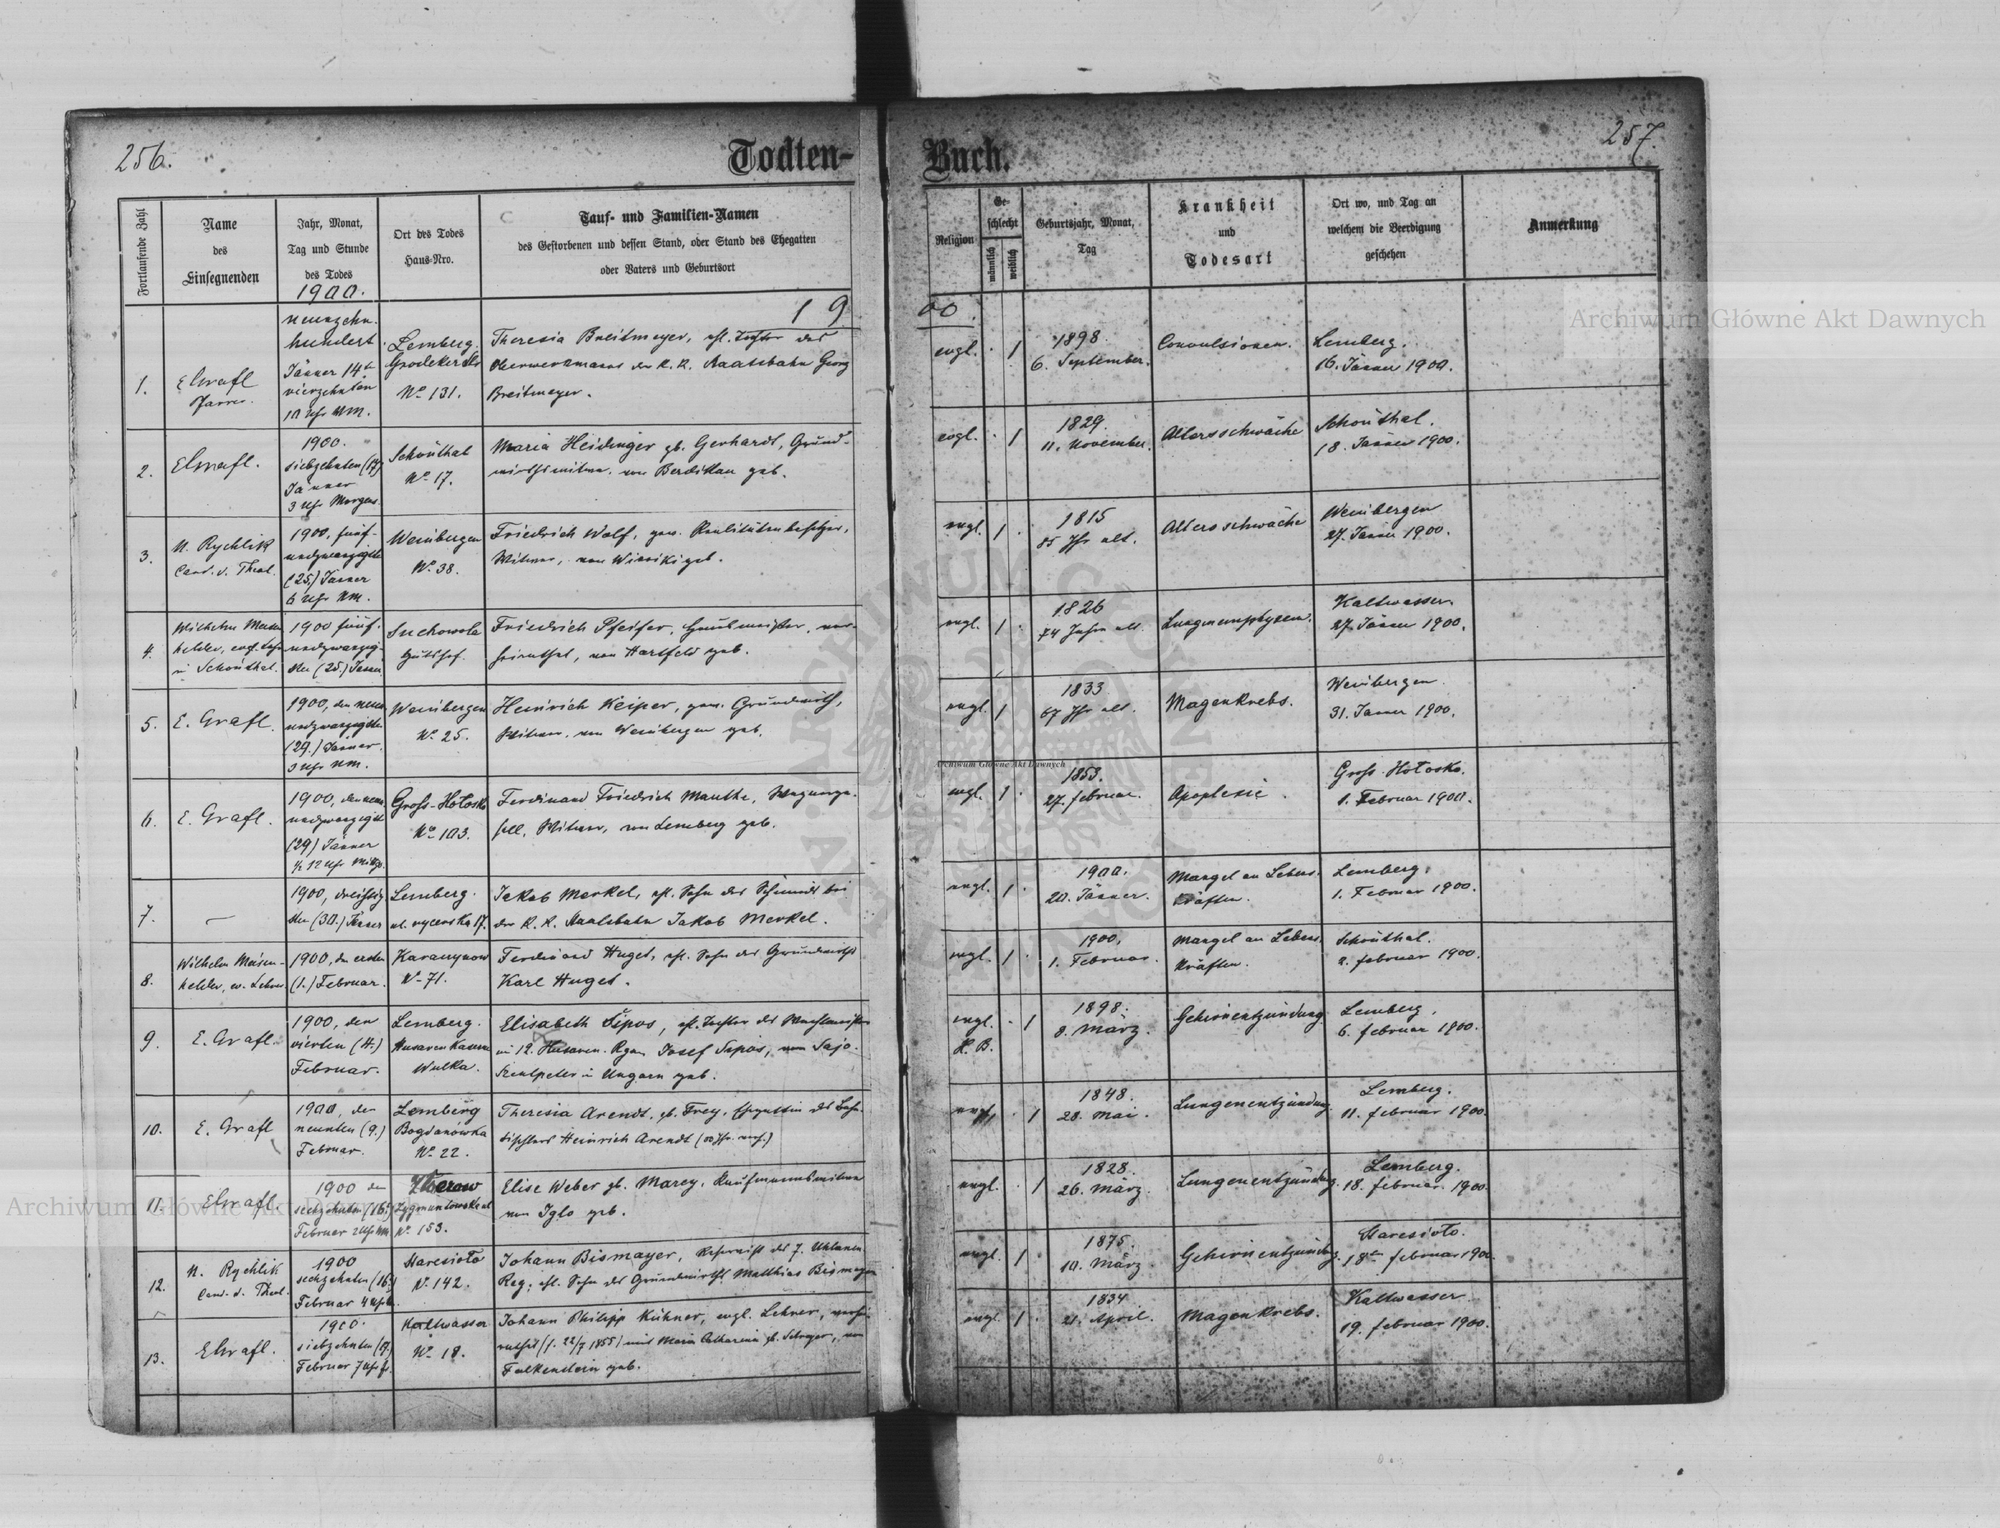 256.
Todten-
Buch.
257.
Fortlaufende Zahl
Name
des
Einsegnenden
Jahr, Monat,
Tag und Stunde
des Todes
1900.
Ort des Todes
Haus-Nro.
Tauf- und Familien-Namen
des Gestorbenen und dessen Stand, oder Stand des Ehegatten
oder Vaters und Geburtsort
Religion
Ge-
schlecht
männlich
weiblich
Geburtsjahr, Monat,
Tag
Krankheit
und
Todesart
Ort wo, und Tag an
welchem die Beerdigung
geschehen
Anmerkung
19
00
1.
EGrafl
Pfarrer.
neunzehn-
hundert
Jänner 14
vierzehnten
10 Uhr NM.
Lemberg.
No 131.
Theresia Breitmeyer, ehl. Tochter des
der K. K. Staatsbahn Georg
Breitmeyer.
evgl.
1
1898.
6. September.
Convulsionen.
Lemberg.
16. Jänner 1900.
2.
EGrafl.
1900.
siebzehnten (17)
Jänner
3 Uhr Morgens
Schönthal
No 17.
Maria Heidinger gb. Gerhardt, Grund-
wirthswitwe, von Berdikau geb.
evgl.
1
1829.
11. November.
Altersschwäche
Schönthal.
18. Jänner 1900.
3.
N. Rychlik
Cand. d. Theol.
1900, fünf-
undzwanzigste
(25.) Jänner
6 Uhr NM.
Weinbergen
No 38.
Friedrich Wolf, gew. Realitätenbesitzer,
Witwer, von geb.
evgl.
1
1815
85 Jhr alt.
Altersschwäche
Weinbergen
27. Jänner 1900.
4.
Wilhelm
in Schönthal.
1900 fünf-
undzwanzig-
sten (25.) Jänner
Suchowola
Gutshof.
Friedrich Pfeifer, ver-
heirathet, von Hartfeld geb.
evgl.
1
1826
74 Jahre alt.
Lungenemphysem.
Kaltwasser.
27. Jänner 1900.
5.
E. Grafl.
1900, den neun-
undzwanzigsten
(29.) Jänner.
3 Uhr NM.
Weinbergen
No. 25.
Heinrich Keiper, gew. Grundwirth,
Witwer, von Weinbergen geb.
evgl.
1
1833
67 Jhr alt.
Magenkrebs.
Weinbergen.
31. Jänner 1900.
6.
E. Grafl.
1900, den neun-
undzwanzigsten
(29) Jänner
½ 12 Uhr Mittgs.
Gross-Hołosko
No 103.
Ferdinand Friedrich Manthe,
Witwer, von Lemberg geb.
evgl.
1
1853.
27. Februar.
Apoplexie.
Gross-Hołosko.
1. Februar 1900.
7.
—
1900, dreissig-
sten (30.) Jänner
Lemberg.
Jakob Merkel, ehl. Sohn des Schmieds bei
der K. K. Staatsbahn Jakob Merkel.
evgl.
1
1900.
20. Jänner.
Mangel an Lebens-
kräften.
Lemberg.
1. Februar 1900.
8.
Wilhelm Meisen-
helder, ev. Lehrer
1900, den ersten
(1.) Februar.
Karaczynow
No 71.
Ferdinand Huget, ehl. Sohn des Grundwirths
Karl Huget.
evgl.
1
1900.
1. Februar.
Mangel an Lebens-
kräften.
Schönthal.
2. Februar 1900.
9.
E. Grafl.
1900, den
vierten (4.)
Februar.
Lemberg.
Husaren Kaserne
Wulka.
Elisabeth Sipos, ehl. Tochter des Wachtmeisters
im 12. Husaren-Rgm Josef Sipos, von Sajo-
Szentpeter in Ungarn geb.
evgl.
H. B.
1
1898.
8. März.
Gehirnentzündung
Lemberg.
6. Februar 1900.
10.
E. Grafl
1900, den
neunten (9.)
Februar.
Lemberg
Bogdanówka
No 22.
Theresia Arendt gb. Frey, Ehegattin des
Heinrich Arendt
evgl.
1
1848.
28. Mai.
Lungenentzündung.
Lemberg.
11. Februar 1900.
11.
EGrafl.
1900 den
sechzehnten (16.)
Februar 2 Uhr NM.
Zygmuntowska
No. 153.
Elise Weber gb. Marcy, Kaufmannswitwe
von Iglo geb.
evgl.
1
1828.
26. März.
Lungenentzündung.
Lemberg.
18. Februar 1900.
12.
N. Rychlik
Cand. d. Theol.
1900
sechzehnten (16.)
Februar 4 Uhr
Staresioło
No. 142.
Johann Bismayer, Reservist des 7. Uhlanen
Reg., ehl. Sohn des Grundwirths Matthias Bismayer
evgl.
1
1875.
10. März.
Gehirnentzündung.
Staresioło.
18ten Februar 1900.
13.
EGrafl.
1900.
siebzehnten (17.)
Februar 7 Uhr
Kaltwasser
No. 18.
Johann Philipp Kühner, evgl. Lehrer, verhei-
rathet (s. 22/7 1855) mit Maria Catharina gb. von
Falkenstein geb.
evgl.
1
1834
21. April.
Magenkrebs.
Kaltwasser.
19. Februar 1900.
Archiwum Główne Akt Dawnych
Archiwum Główne Akt Dawnych
Archiwum Główne Akt Dawnych